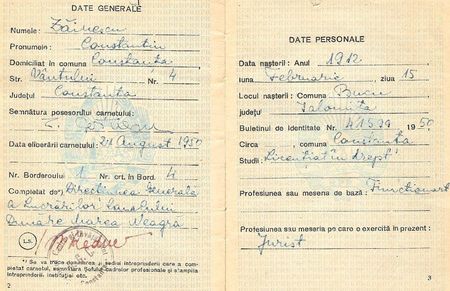 DATE GENERALE
Numele: Zăinescu
Pronumele: Constantin
Domiciliat în comuna Constanța
Str. Vântului Nr. 4
Județul Constanța
Semnătura posesorului carnetului:
Data eliberării carnetului: 24 August 1950
Nr. Borderoului 1 Nr. crt. în Bord. 4
Completat de*) Direcțiunea Generală
a Lucrărilor Canalului
Dunăre Marea Neagră
(L.S.)
*) Se va trece denumirea și sediul întreprinderii care a com-
pletat carnetul, semnătura Șefului cadrelor profesionale și ștampila
întreprinderii, instituției etc.
2
DATE PERSONALE
Data nașterii: Anul 1912
luna Februarie, ziua 15
Locul nașterii: Comuna Bucu
județul Ialomița
Buletinul de Identitate Nr. 1950,
Circa , comuna Constanța
Studii: Licențiat în drept
Profesiunea sau meseria de bază: Funcționar
Profesiunea sau meseria pe care o exercită în prezent:
Jurist
3